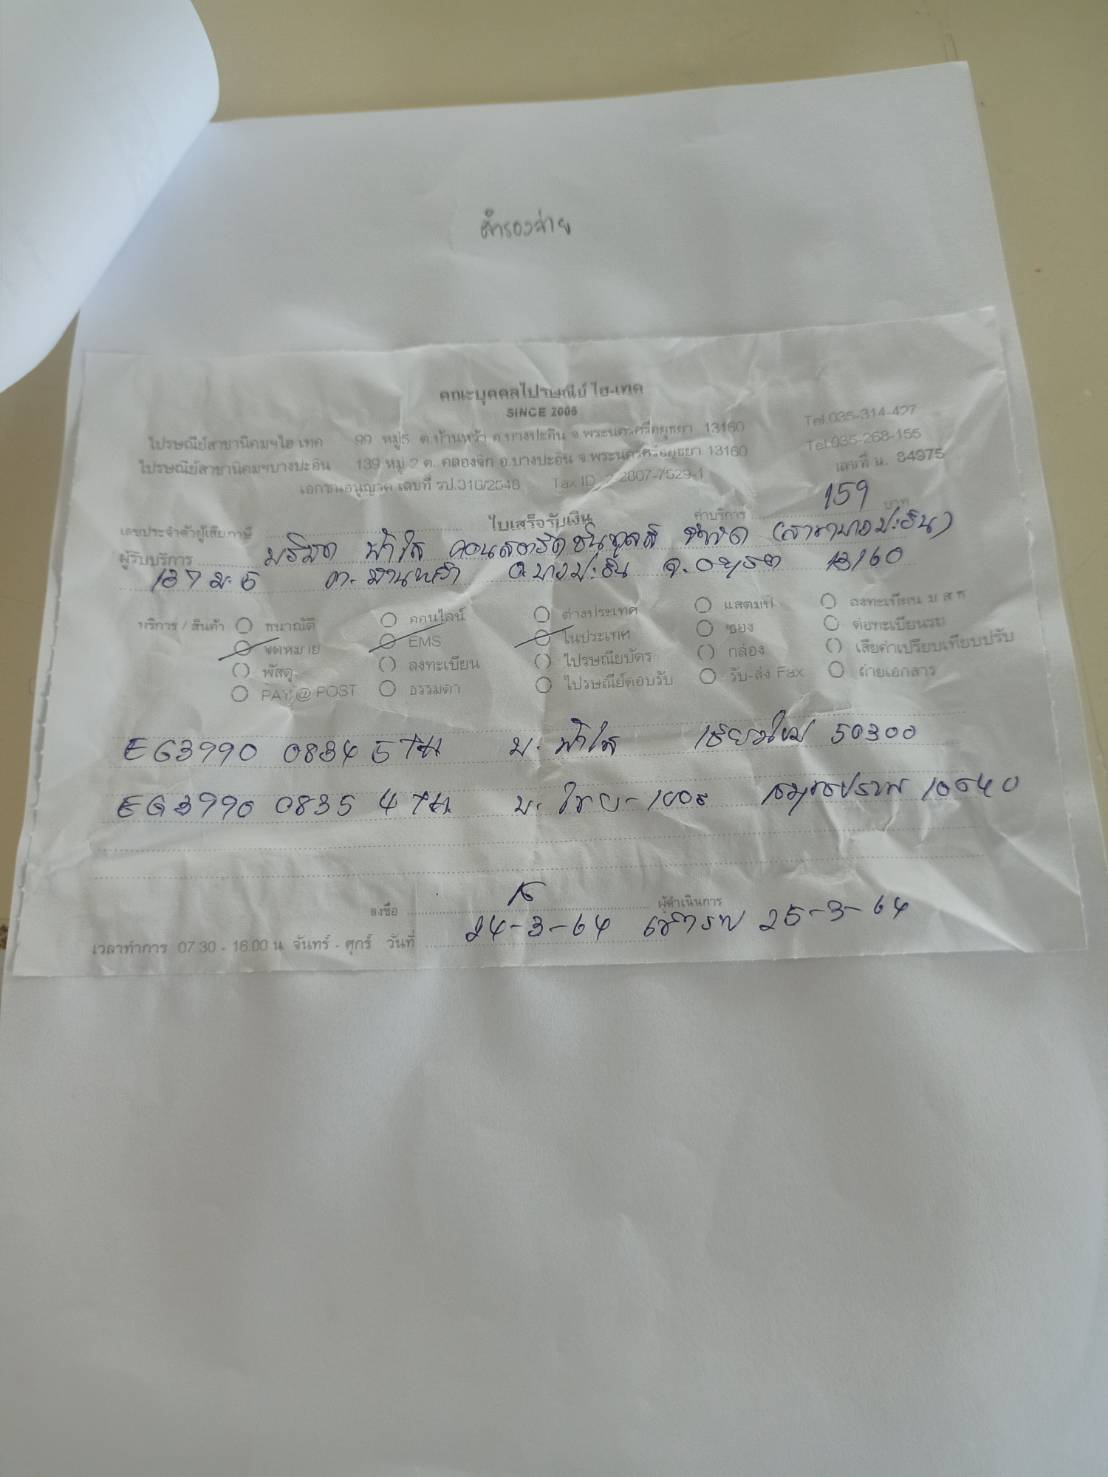 สำรองจ่าย
คณะบุคคลไปรษณีย์ ไฮ-เทค
SINCE 2005
ไปรษณีย์สาขานิคมฯไฮ เทค 99 หมู่5 ต.บ้านหว้า อ.บางปะอิน จ.พระนครศรีอยุธยา 13160 Tel.035-314-427
ไปรษณีย์สาขานิคมฯบางปะอิน 139 หมู่ 2 ต. คลองจิก อ.บางปะอิน จ.พระนครศรีอยุธยา 13160 Tel.035-268-155
เอกชนอนุญาต เลขที่ รป.316/2548 Tax ID 2007-7529-1 เลขที่ น. 84975
เลขประจำตัวผู้เสียภาษี ใบเสร็จรับเงิน ค่าบริการ 159 บาท
ผู้รับบริการ บริษัท ฟ้าใส คอนสตรัคชั่น จำกัด (สาขาบางปะอิน)
137 ม.5 ต.บ้านหว้า อ.บางปะอิน จ.อยุธยา 13160
บริการ / สินค้า ธนาณัติ ออนไลน์ ต่างประเทศ แสตมป์ ลงทะเบียน ม ส ท
จดหมาย EMS ในประเทศ ซอง ต่อทะเบียนรถ
พัสดุ ลงทะเบียน ไปรษณียบัตร กล่อง เสียค่าเปรียบเทียบปรับ
PAY @ POST ธรรมดา ไปรษณีย์ตอบรับ รับ-ส่ง Fax ถ่ายเอกสาร
EG3990 0834 5 TH บ. ฟ้าใส เชียงใหม่ 50300
EG3990 0835 4 TH บ. ไทย- สมุทรปราการ 10540
ลงชื่อ ผู้ดำเนินการ
เวลาทำการ 07.30 - 16.00 น จันทร์ - ศุกร์ วันที่ 24-3-64 25-3-64